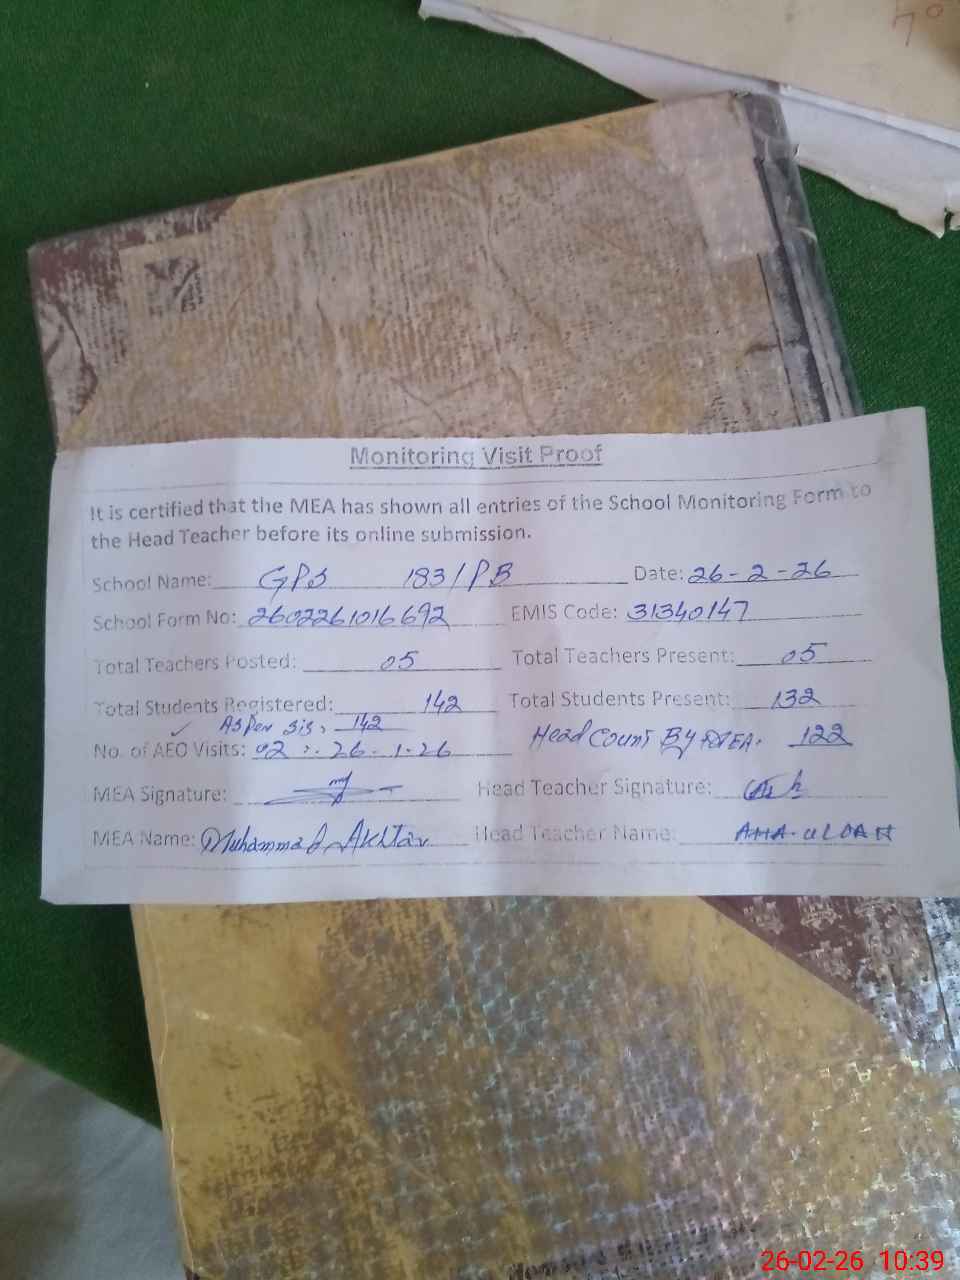 7°
Monitoring Visit Proof
It is certified that the MEA has shown all entries of the School Monitoring Form to
the Head Teacher before its online submission.
School Name: GPS 183/PB Date: 26-2-26
School Form No: 2602261016692 EMIS Code: 31340147
Total Teachers Posted: 05 Total Teachers Present: 05
Total Students Registered: 142 Total Students Present: 132
As Per SIS, 142
No. of AEO Visits: 02 26-1-26 Head Count By MEA. 122
MEA Signature: Head Teacher Signature:
MEA Name: Muhammad Akhtar Head Teacher Name:
26-02-26 10:39